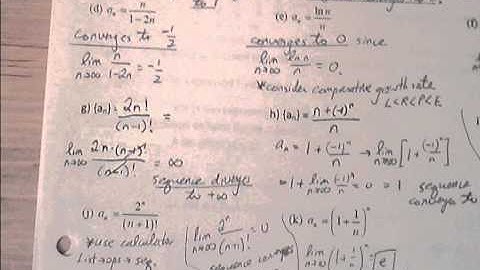 (d) aₙ = n/(1-2n)
converges to -1/2
lim n→∞ n/(1-2n) = -1/2
(e) aₙ = ln n/n
converges to 0 since
lim n→∞ ln n/n = 0.
*consider comparative growth rate
L<R<P<E
g) {aₙ} = 2n!/(n-1)! =
lim n→∞ 2n·(n-1)!/(n-1)! = ∞
sequence diverges
to +∞
h) {aₙ} = (n+(-1)ⁿ)/n
aₙ = 1 + (-1)ⁿ/n → lim n→∞ [1 + (-1)ⁿ/n]
= 1 + lim n→∞ (-1)ⁿ/n = 0 = 1
sequence
converges to
(j) aₙ = 2ⁿ/(n+1)!
*use calculator
List→ops→seq
lim n→∞ 2ⁿ/(n+1)! = 0
sequence converges
(k) aₙ = (1 + 1/n)ⁿ
lim n→∞ (1 + 1/n)ⁿ = e